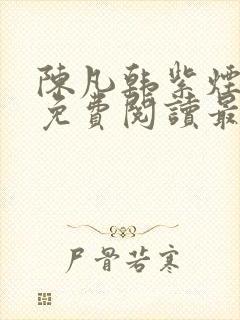 陳凡韓紫煙
免費閱讀最
尸骨若寒